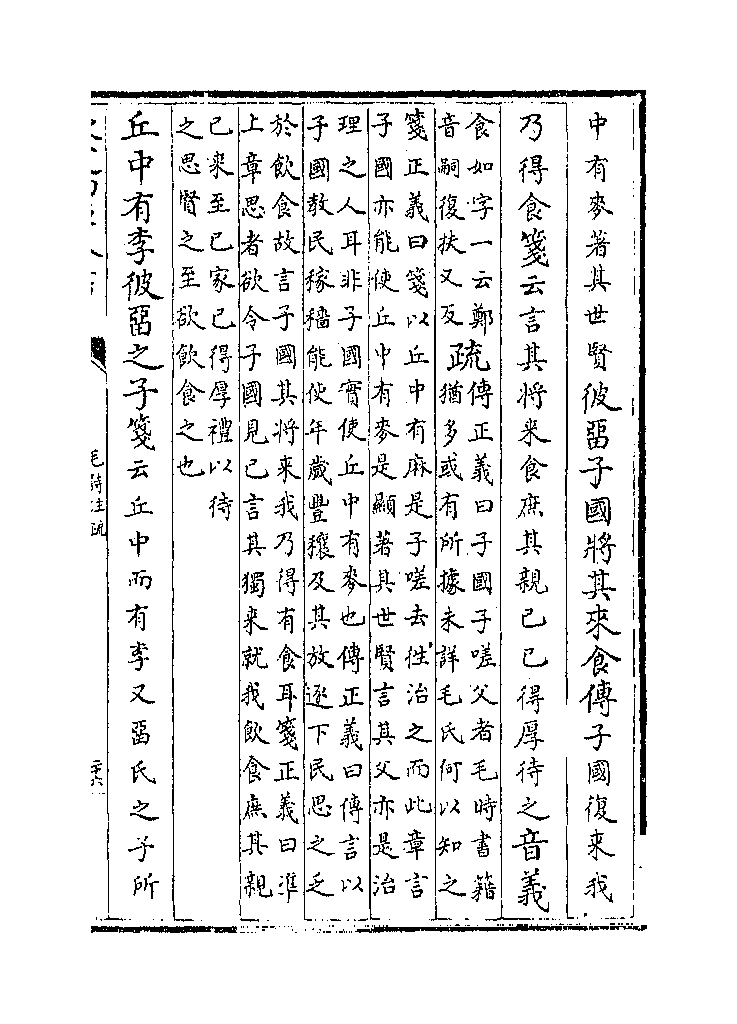 中有麥著其世賢彼畱子國將其來食傳子國復來我
乃得食箋云言其將來食庶其親己己得厚待之音義
食如字一云鄭
音嗣復扶又反
疏
傳正義曰子國子嗟父者毛時書籍
猶多或有所據未詳毛氏何以知之
箋正義曰箋以丘中有麻是子嗟去往治之而此章言
子國亦能使丘中有麥是顯著其世賢言其父亦是治
理之人耳非子國實使丘中有麥也傳正義曰傳言以
子國教民稼穡能使年歲豐穰及其放逐下民思之乏
於飲食故言子國其將來我乃得有食耳箋正義曰準
上章思者欲令子國見己言其獨來就我飲食庶其親
己來至己家己得厚禮以待
之思賢之至欲飲食之也
丘中有李彼畱之子箋云丘中而有李又畱氏之子所
毛詩注疏
二十六